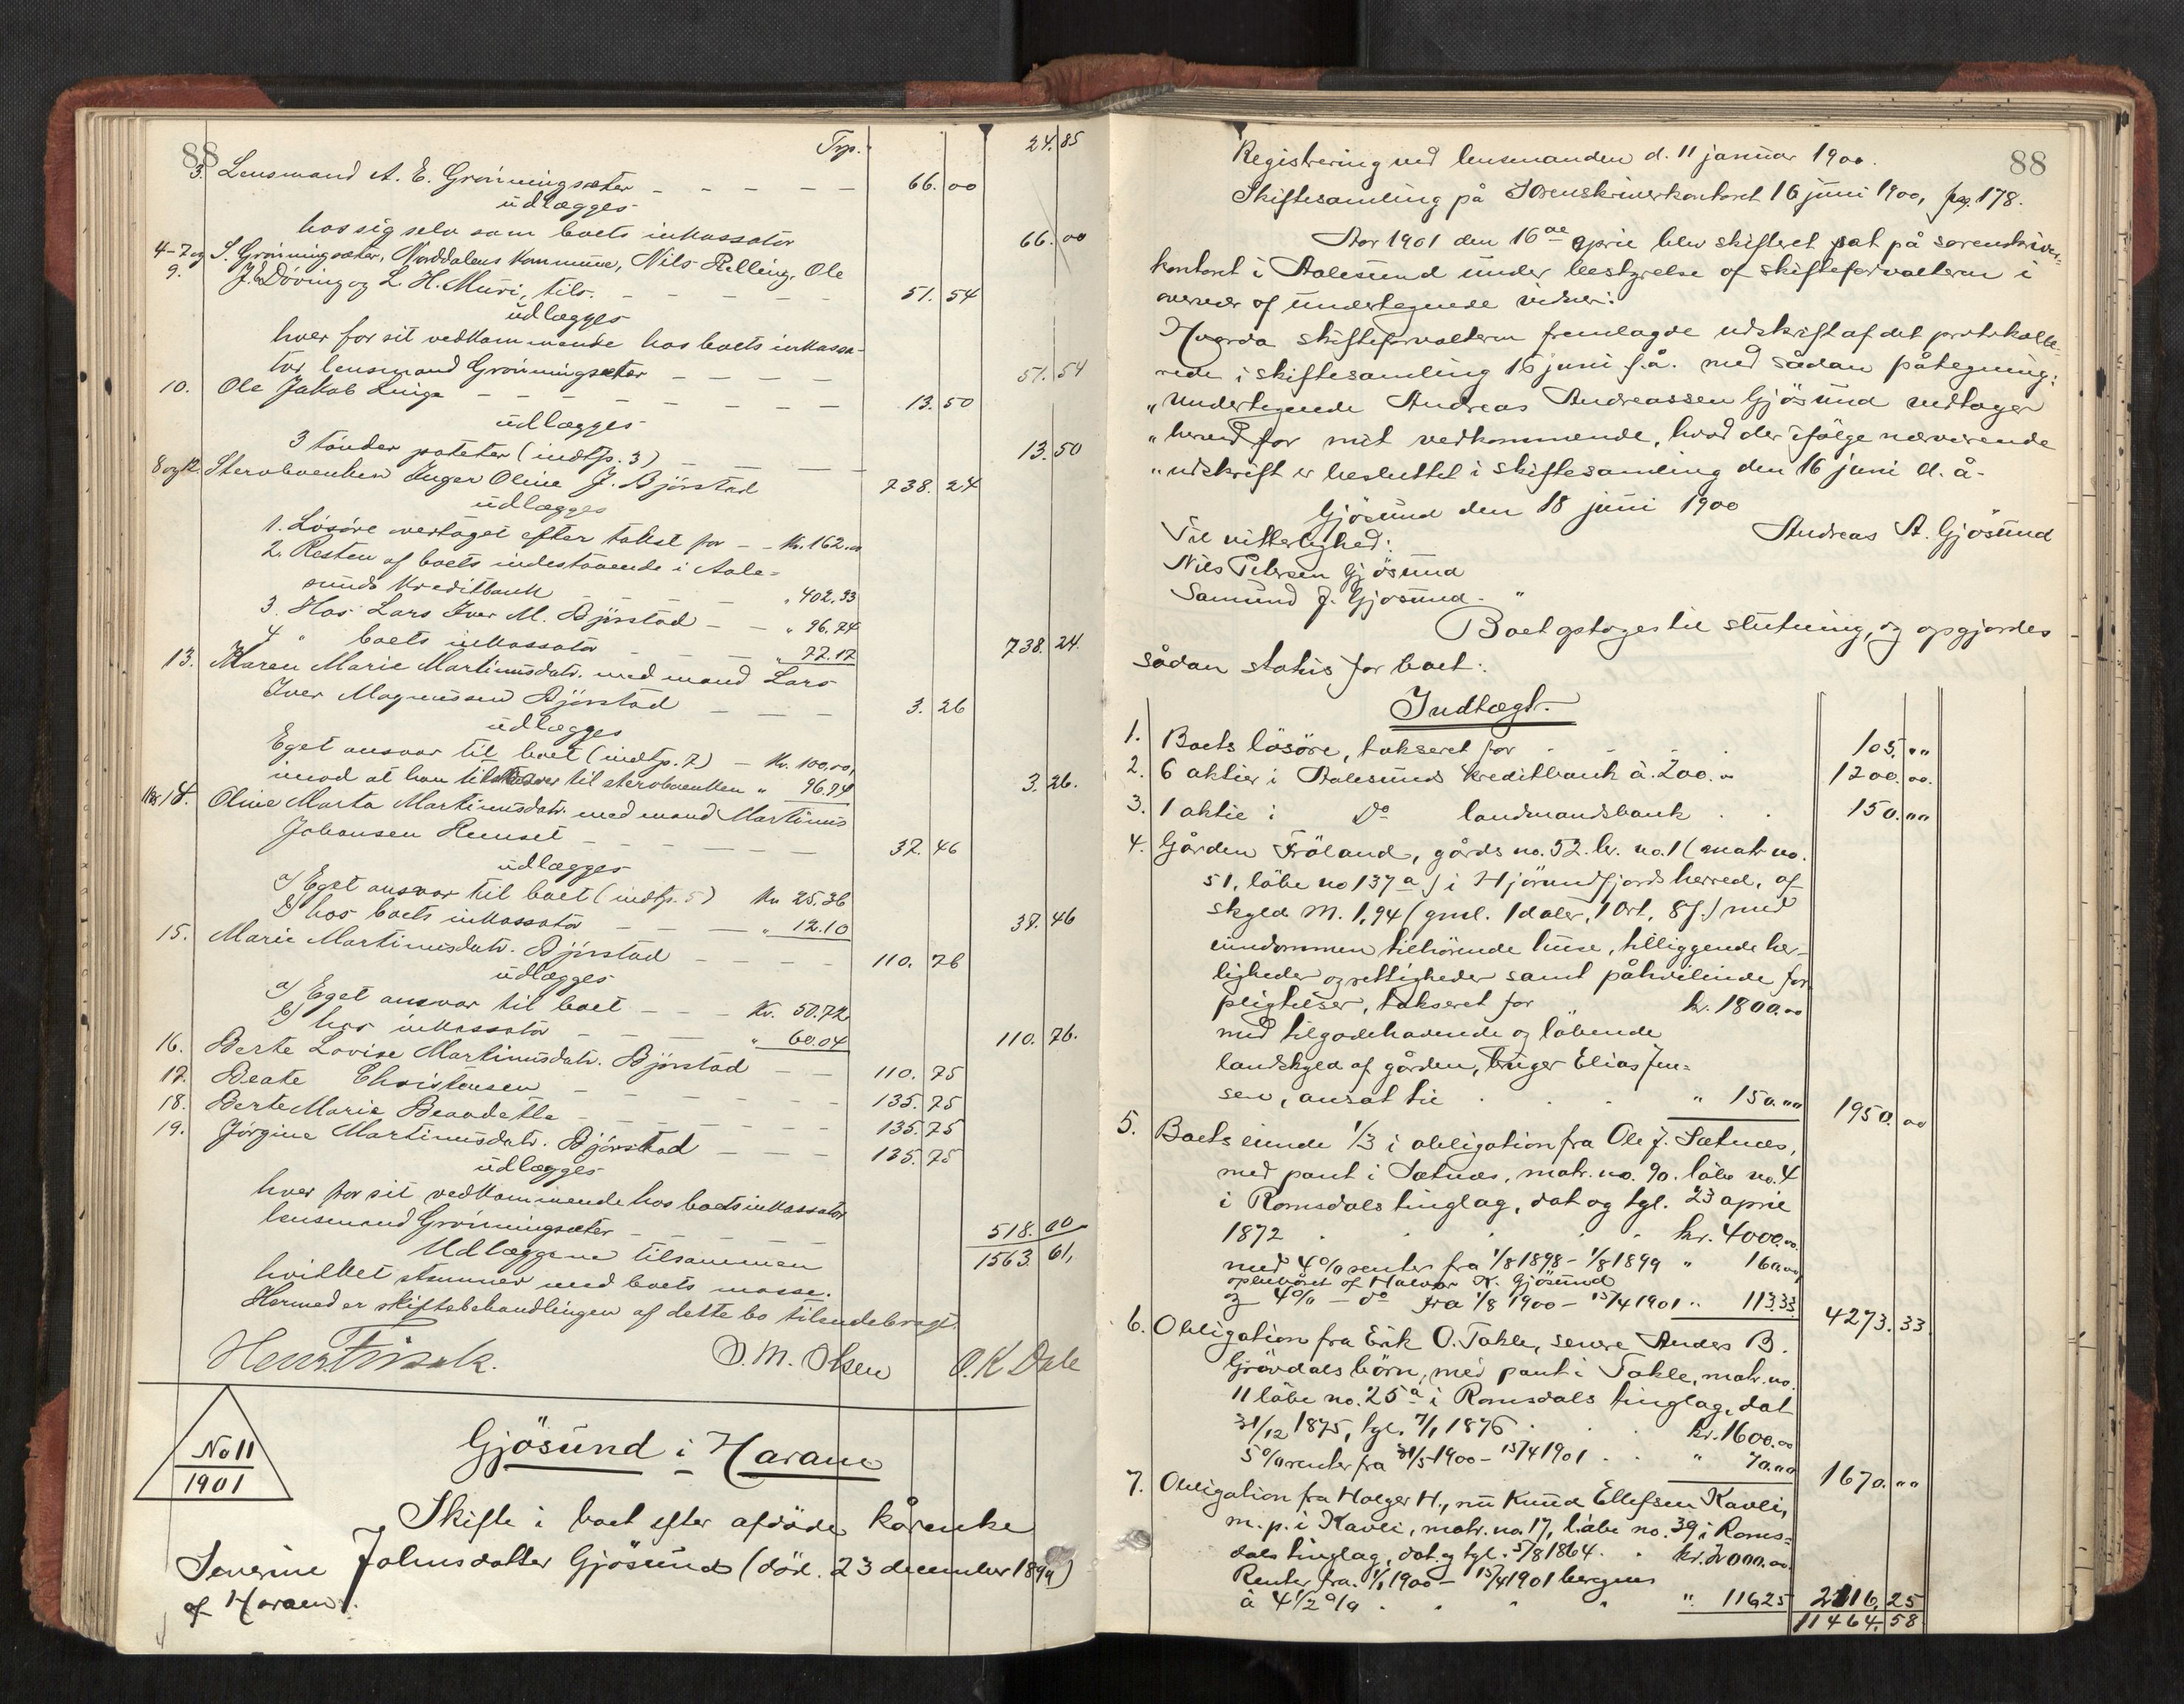 88
Trp. 24.85
3. Lensmand A. E. Grönningsæter - - - - - 66.00
udlægges
hos sig selv som boets inkassator 66.00
4-7 og 9. S. Grönningsæter, Norddalens kommune, Nils Relling, Ole
J. Döving og L. H. Muri, tils. - - - - - 51.54
udlægges
hver for sit vedkommende hos boets inkassa-
tor lensmand Grönningsæter - - - - 51.54
10. Ole Jakob Linge - - - - - - - 13.50
udlægges
3 tönder poteter (indtp. 3) - - - - 13.50
8 og 12. Stervboenken Inger Oline J. Björstad 738.24
udlægges
1. Lösöre overtaget efter takst for - - kr. 162.00
2. Resten af boets indestående i Aale-
sunds Kreditbank - - - - " 402.33
3. Hos Lars Iver M. Björstad - - " 96.74
4 " boets inkassator - - - - " 77.17 738.24.
13. Maren Marie Martinusdatr. med mand Lars
Iver Magnussen Björstad - - - 3.26
udlægges
Eget ansvar til boet (indtp. 7) - Kr. 100.00,
imod at han tilsvarer til stervboenken " 96.74 3.26.
14. Oline Marta Martinusdatr. med mand Martinus
Johansen Remset - - - - - - 37.46
udlægges
a) Eget ansvar til boet (indtp. 5) Kr 25.36
b) hos boets inkassator - - - " 12.10 37.46
15. Marie Martinusdatr. Björstad - - - - 110.76
udlægges
a) Eget ansvar til boet - - - Kr. 50.72
b) hos inkassator - - - - " 60.04 110.76.
16. Berte Lovise Martinusdatr. Björstad - - 110.75
17. Beate Christensen - - - - - - 135.75
18. Berte Marie Brandette - - - - - 135.75
19. Jörgine Martinusdatr. Björstad - - - 135.75
udlægges
hver for sit vedkommende hos boets inkassator
lensmand Grönningsæter - - - - - 518.00
Udlæggene tilsammen 1563.61,
hvilket stemmer med boets masse.
Hermed er skiftebehandlingen af dette bo tilendebragt.
O. M. Olsen O. K. Dale
No 11
1901
Gjösund i Haram
Skifte i boet efter afdöde kårenke
Severine Johnsdatter Gjösund (död. 23 december 1899)
af Haram.
88
Registrering ved lensmanden d. 11 januar 1900.
Skiftesamling på Sorenskriverkontoret 16 juni 1900, pag. 178.
Aar 1901 den 16de april blev skifteret sat på sorenskriver-
kontoret i Aalesund under bestyrelse af skifteforvalteren i
overvær af undertegnede vidner:
Hvorda skifteforvalteren fremlagde udskrift af det protokolle-
rede i skiftesamling 16 juni f.å. med sådan påtegning:
„Undertegnede Andreas Andreassen Gjösund vedtager
„herved for mit vedkommende, hvad der ifölge nærværende
„udskrift er besluttet i skiftesamling den 16 juni d. å-
Gjösund den 18 juni 1900
Til vitterlighed: Andreas A. Gjösund
Nils Petersen Gjösund
Samund J. Gjösund. "
Boet optoges til slutning, og opgjordes
sådan status for boet:
Indtægt.
1. Boets lösöre, takseret for . . . 105.""
2. 6 aktier i Aalesunds Kreditbank à. 200.00 1200.00.
3. 1 aktie i do landmandsbank . . 150.""
4. Gården Fröland, gårds no. 52. br. no. 1 (matr. no.
51, löbe no 137 a) i Hjörundfjords herred, af
skyld M. 1,94 (gml. 1 daler, 1 ort, 8 s.) med
eiendommen tilhörende huse, tilliggende her-
ligheder og rettigheder samt påhvilende for-
pligtelser, takseret for kr. 1800.00
med tilgodehavende og löbende
landskyld af gården, bruger Elias Jen-
sen, ansat til . . . " 150.00 1950.00
5. Boets eiende 1/3 i obligation fra Ole J. Sætnes,
med pant i Sætnes, matr. no. 90. löbe no. 4
i Romsdals tinglag, dat og tgl. 23 april
1872 . . . . kr. 4000.00.
med 4% renter fra 1/8 1898 - 1/8 1899 " 160.00,
oppebåret af Halvor K. Gjösund
og 4% - do fra 1/8 1900 - 15/4 1901 " 113.33 4273.33
6. Obligation fra Erik O. Takle, senere Anders B.
Grövdals börn, med pant i Takle, matr. no.
11 löbe no. 25 a i Romsdals tinglag, dat
31/12 1875, tgl. 7/1 1876 . . . kr. 1600.00
5% renter fra 31/5 1900 - 15/4 1901 . . " 70.00 1670.""
7. Obligation fra Holger H., nu Knud Ellefsen Kavli,
m. p. i Kavli, matr. no. 17, löbe no. 39 i Roms-
dals tinglag, dat. og tgl. 5/8 1864. . kr. 2000.00
Renter fra. 1/1 1900 - 15/4 1901 beregnes
à 4 1/2 % . . . . " 116,25 2116.25
11464.58